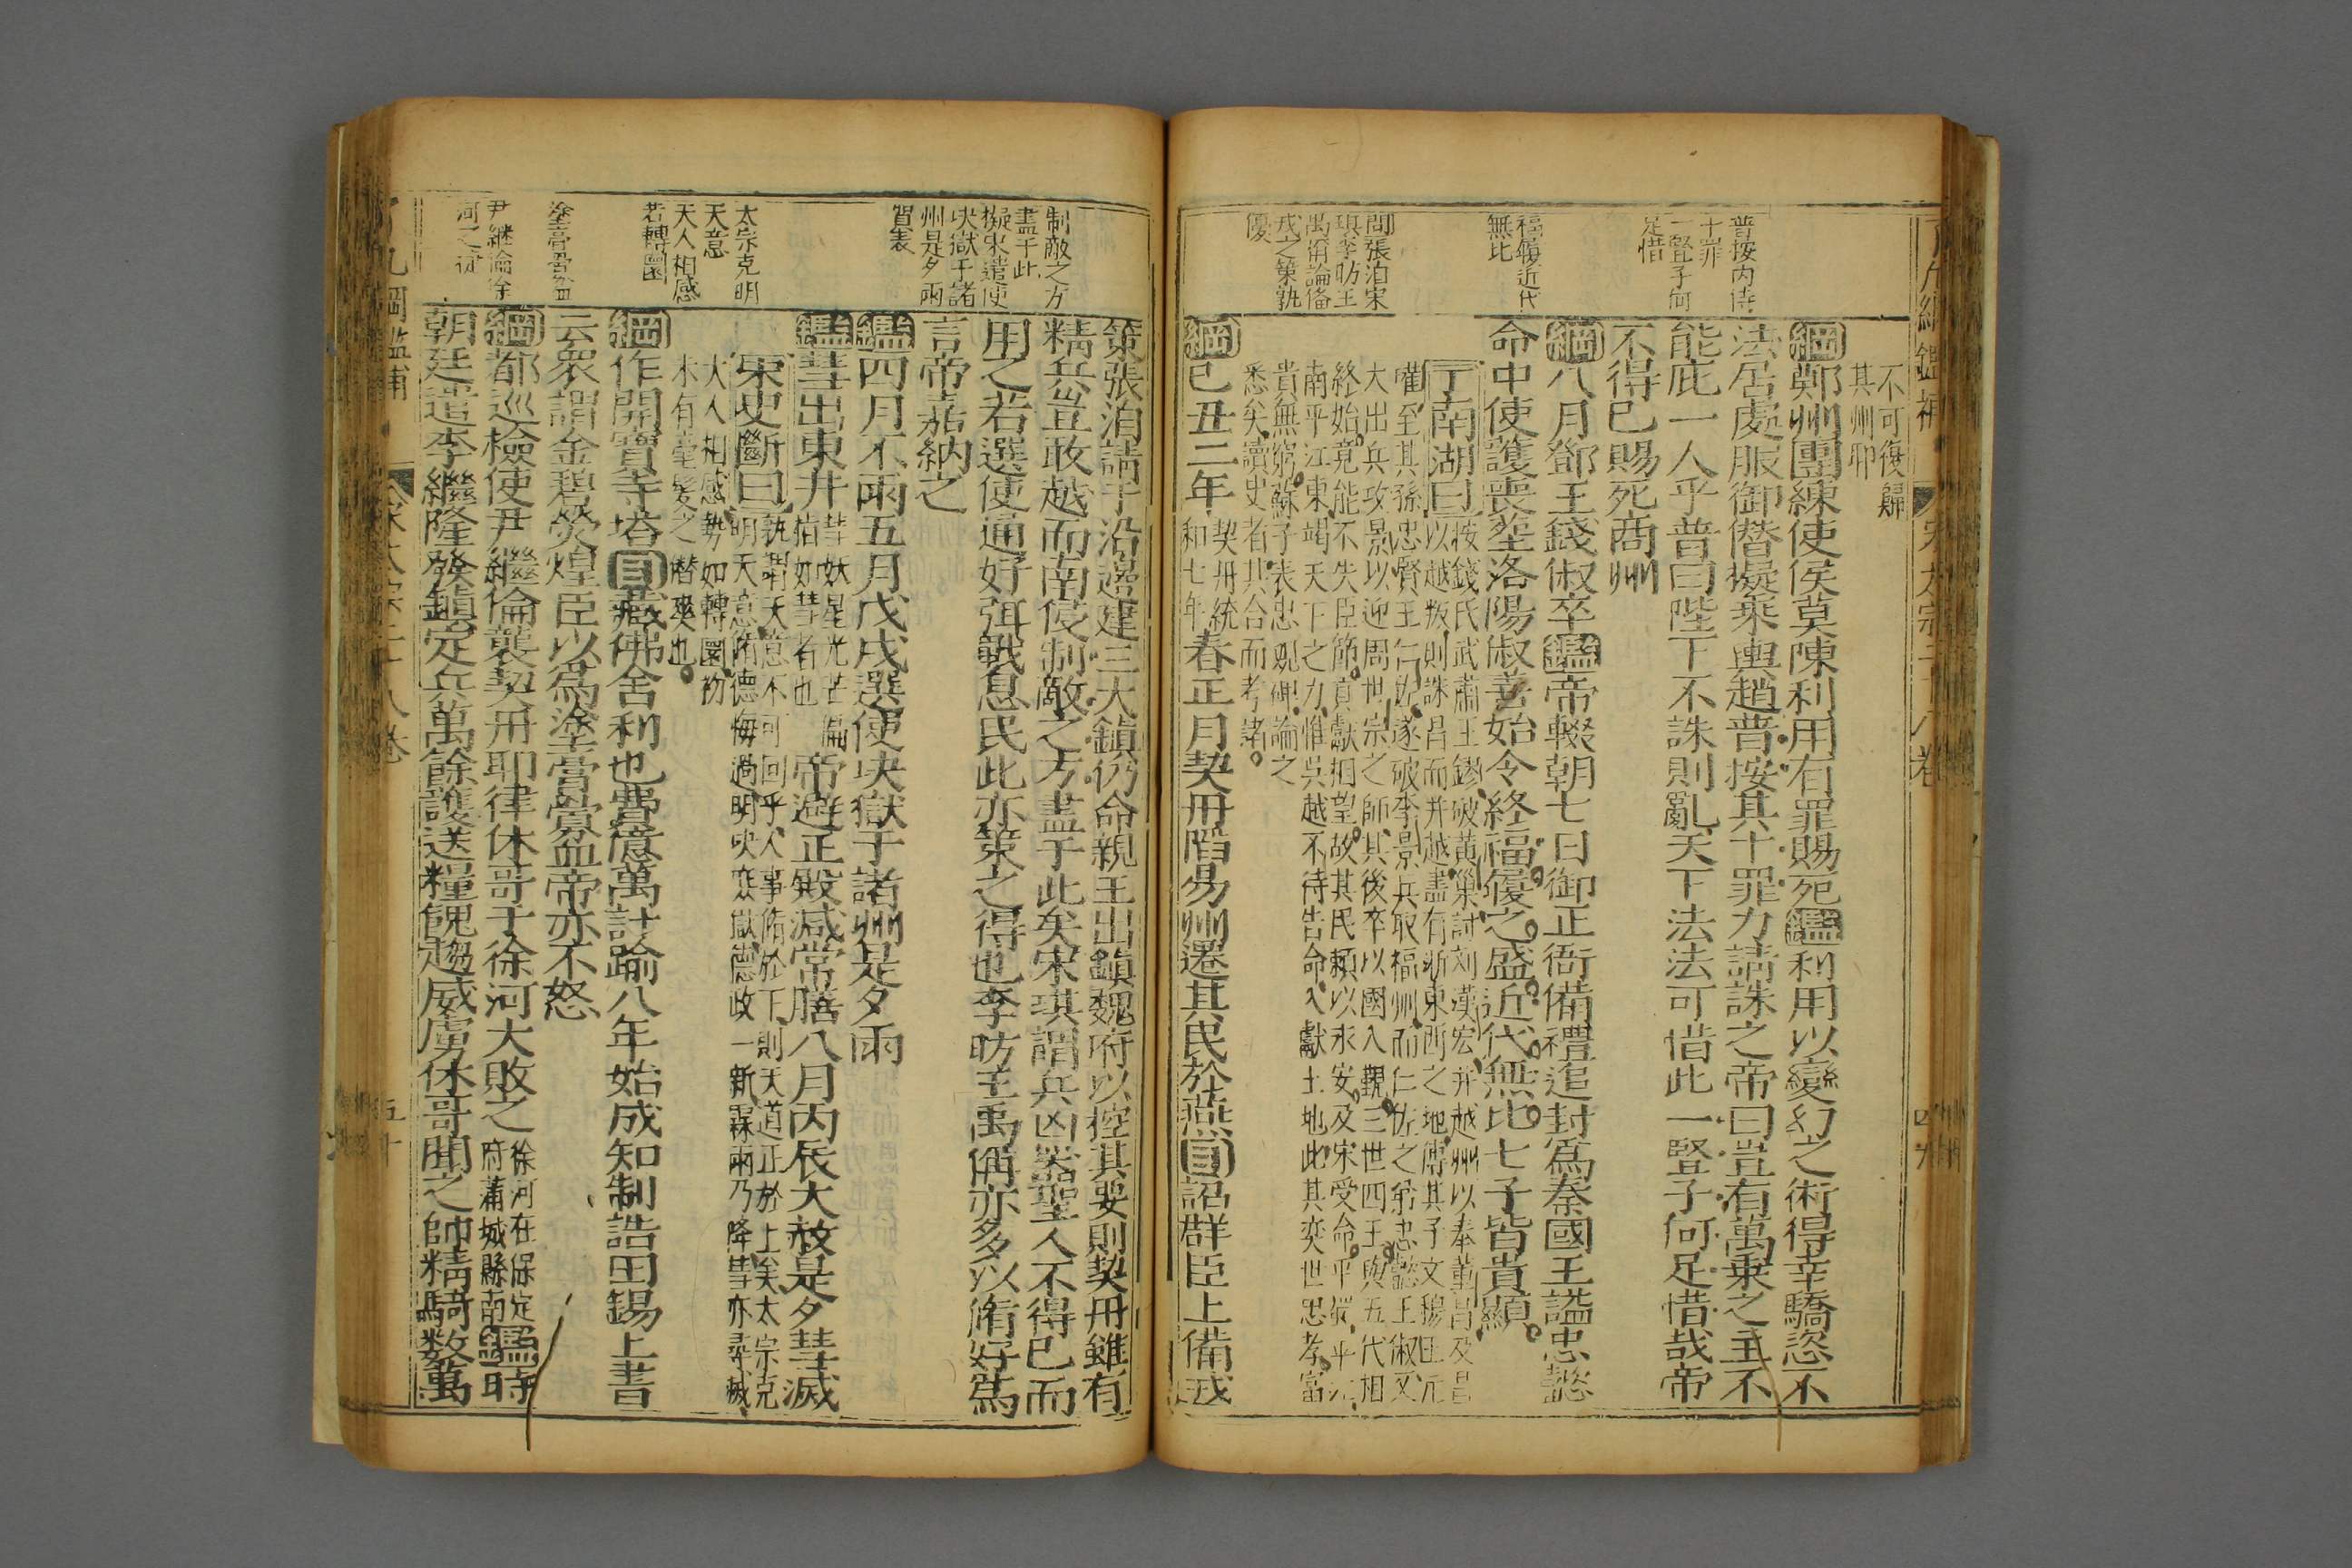 不可復歸
其州耶
綱鄭州團練使侯莫陳利用有罪賜死鑑利用以變幻之術得幸驕恣不
法居處服御僭擬乘輿趙普按其十罪力請誅之帝曰豈有萬乘之主不
能庇一人乎普曰陛下不誅則亂天下法法可惜此一豎子何足惜哉帝
不得已賜死商州
綱八月鄧王錢俶卒鑑帝輟朝七日御正衙備禮追封為秦國王謚忠懿
命中使護喪塟洛陽俶善始令終福履之盛近代無比七子皆貴顯
丁南湖曰按錢氏武肅王鏐破黃巢討刘漢宏并越州以奉董昌及昌
以越叛則誅昌而并越盡有浙東西之地傳其子文穆王元
瓘至其孫忠賢王仁佐遂破李景兵取福州而仁佐之弟忠懿王俶又
大出兵攻景以迎周世宗之師其後卒以國入覲三世四王與五代相
終始竟能不失臣節貢獻相望故其民賴以永安及宋受命平
南平江東竭天下之力惟吳越不待告命入獻土地此其奕世忠孝富
貴無窮蘇子表忠觀碑論之
悉矣讀史者其合而考諸
綱己丑二年契丹統
和七年春正月契丹陷易州遷其民於燕目詔群臣上備戎
普按內侍
十罪
一豎子何
足惜
福履近代
無比
問張洎宋
琪李昉王
禹偁論備
戎之策孰
優
四九
策張洎請于沿邊建三大鎮仍命親王出鎮魏府以控其要則契丹雖有
精兵豈敢越而南侵制敵之方盡于此矣宋琪謂兵凶器聖人不得已而
用之若選使通好弭戰息民此亦策之得也李昉王禹偁亦多以脩好為
言帝嘉納之
鑑四月不雨五月戊戌選使決獄于諸州是夕雨
鑑彗出東井彗妖星光芒偏
指如彗者也帝避正殿减常膳八月丙辰大赦是夕彗滅
宋史斷曰孰謂天意不可回乎人事脩於下則天道正於上矣太宗克
明天意脩德悔過明决庶獄德政一新霖雨乃降彗亦尋滅
天人相感勢如轉圜初
未有毫髮之僭爽也
綱作開寶寺塔目藏佛舍利也費億萬計踰八年始成知制誥田錫上書
云眾謂金碧熒煌臣以為塗膏釁血帝亦不怒
綱都巡檢使尹繼倫襲契丹耶律休哥于徐河大敗之徐河在保定
府蒲城縣南鑑時
朝廷遣李繼隆發鎮定兵萬餘護送糧餽趨威虜休哥聞之帥精騎数萬
制敵之方
盡于此
擬宋遣使
决獄于諸
州是夕雨
賀表
太宗克明
天意
天人相感
若轉圜
塗膏釁血
尹繼倫徐
河之捷
五十